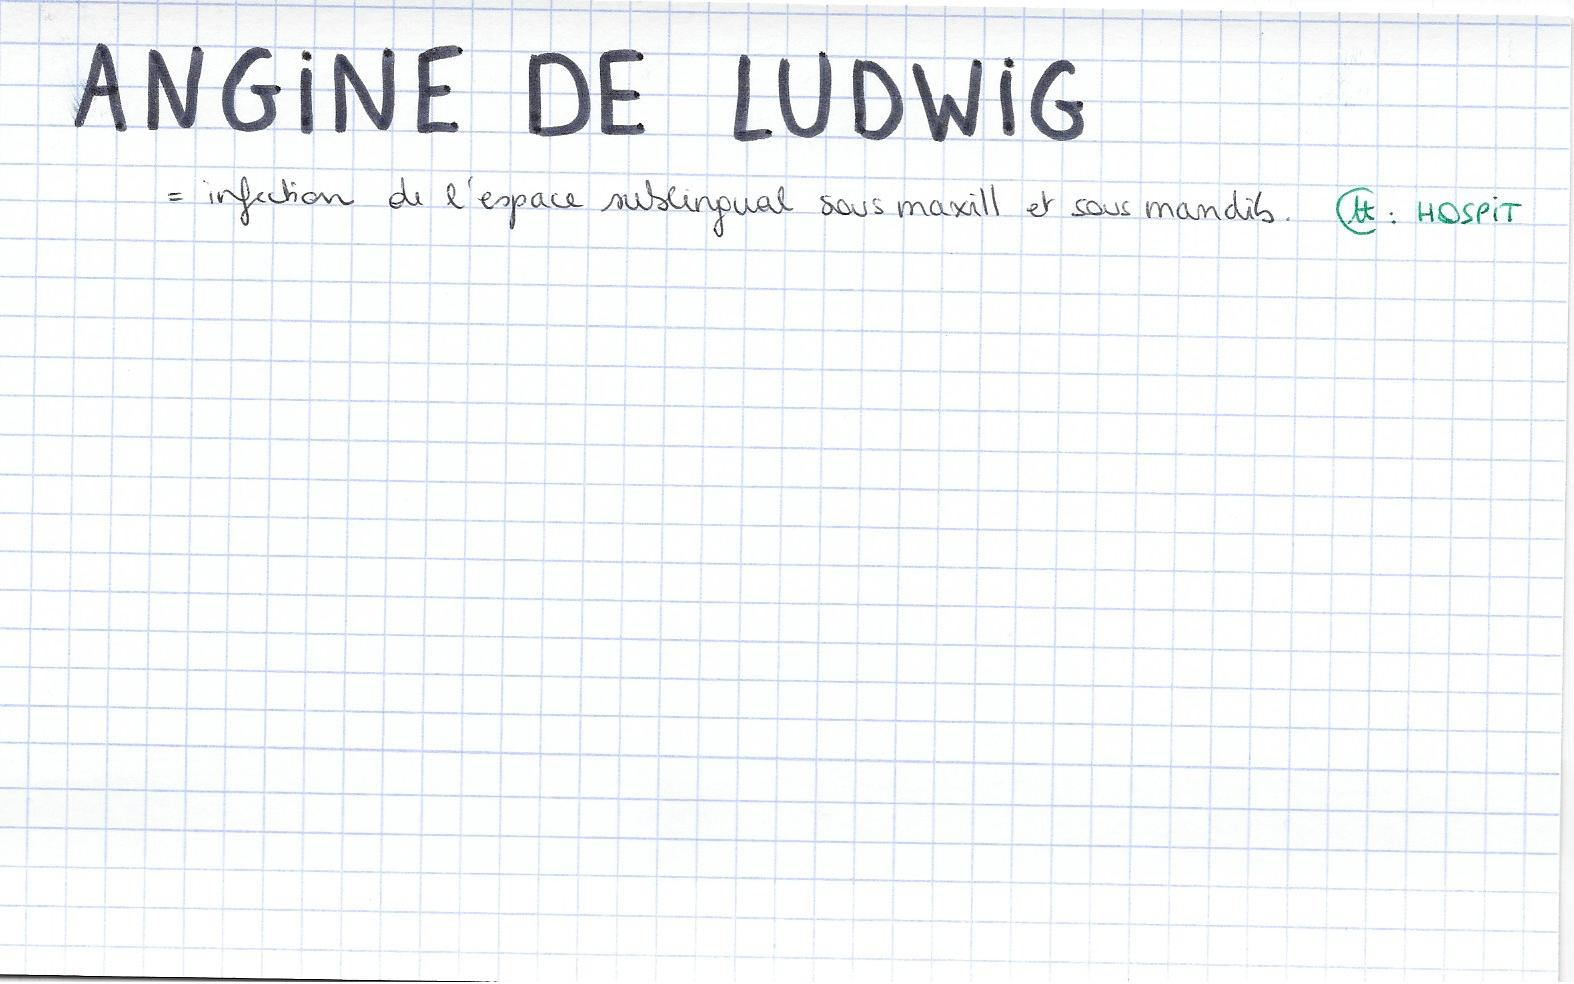 ANGiNE DE LUDWiG
= infection de l'espace sublingual sous maxill et sous mandib. tt : HOSPiT